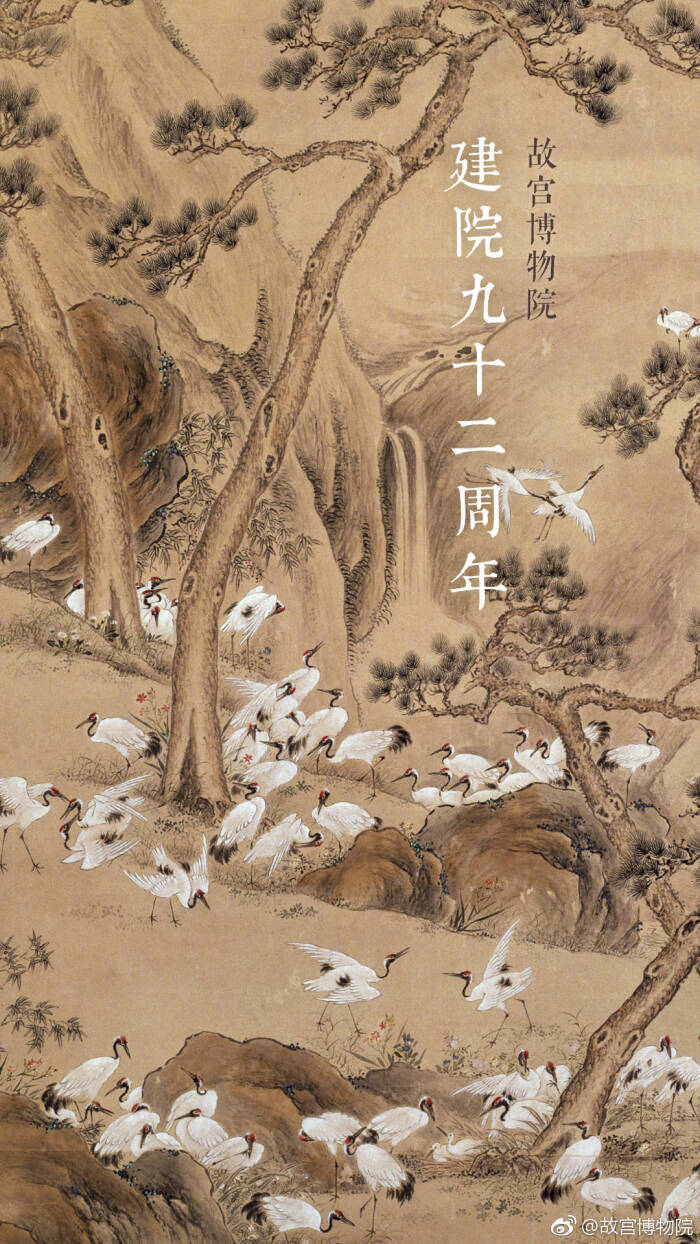 故宫博物院
建院九十二周年
@故宫博物院